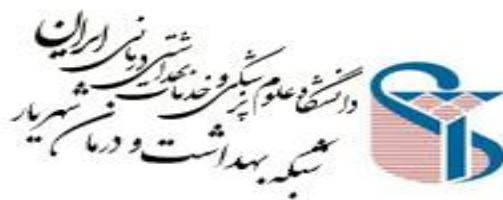 دانشگاه علوم پزشکی و خدمات بهداشتی درمانی ایران
شبکه بهداشت و درمان شهریار